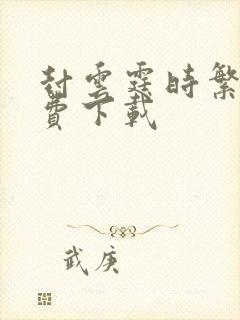 封雲霆時繁
費下載
武庚